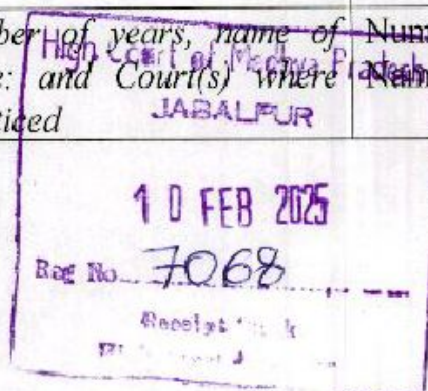 ber of years, name of Num
e: and Court(s) where Nam
ticed
High Court of Madhya Pradesh
JABALPUR
10 FEB 2025
Reg No. 7068
Receipt